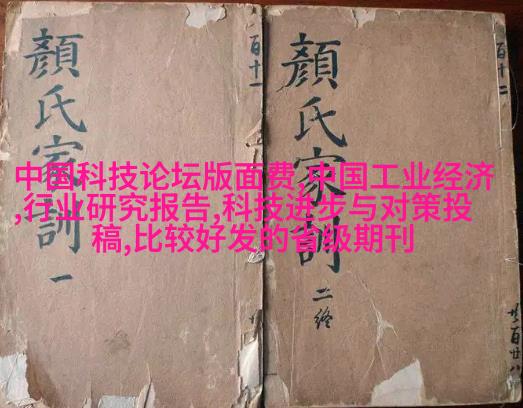 顏氏家訓 一
百十一
顏氏家訓 二終
百十二
中国科技论坛版面费,中国工业经济
,行业研究报告,科技进步与对策投
稿,比较好发的省级期刊